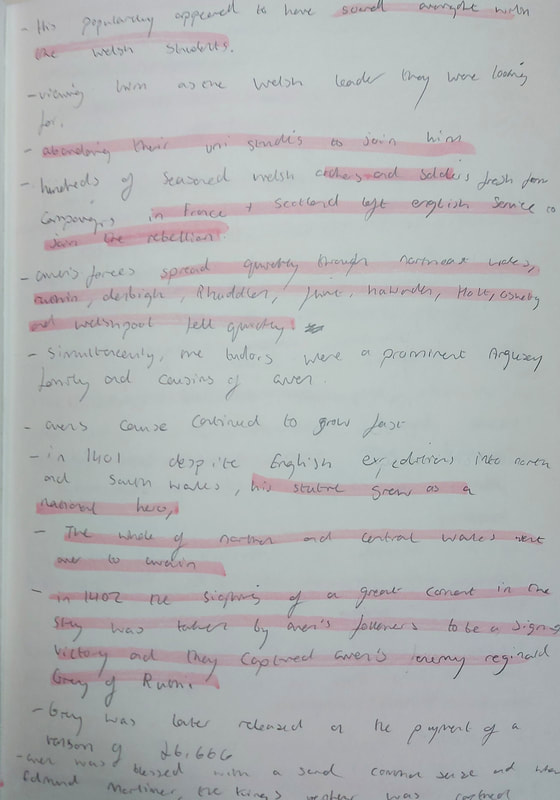 - His popularity appeared to have soared amongst within
the welsh students.
- viewing him as the welsh leader they were looking
for.
- abandoning their uni studies to join him
- hundreds of seasoned welsh archers and soldiers fresh from
campaigns in France + Scotland left english service to
join the rebellion.
- owen's forces spread quickly through northeast wales,
ruthin, denbigh, Rhuddlan, flint, hawarden, Holt, oswestry
and welshpool fell quickly.
- Simultaneously, the tudors were a prominent Anglesey
family and cousins of owen.
- owen's cause continued to grow fast
- in 1401 despite English expeditions into north
and south wales, his stature grew as a
national hero,
- The whole of northern and central wales went
over to owain
- in 1402 the sighting of a great comet in the
sky was taken by owen's followers to be a sign of
victory and they captured owen's enemy reginald
Grey of Ruthin.
- Grey was later released on the payment of a
ransom of £6,666
- owen was blessed with a sound common sense and when
Edmund Mortimer, the king's was captured